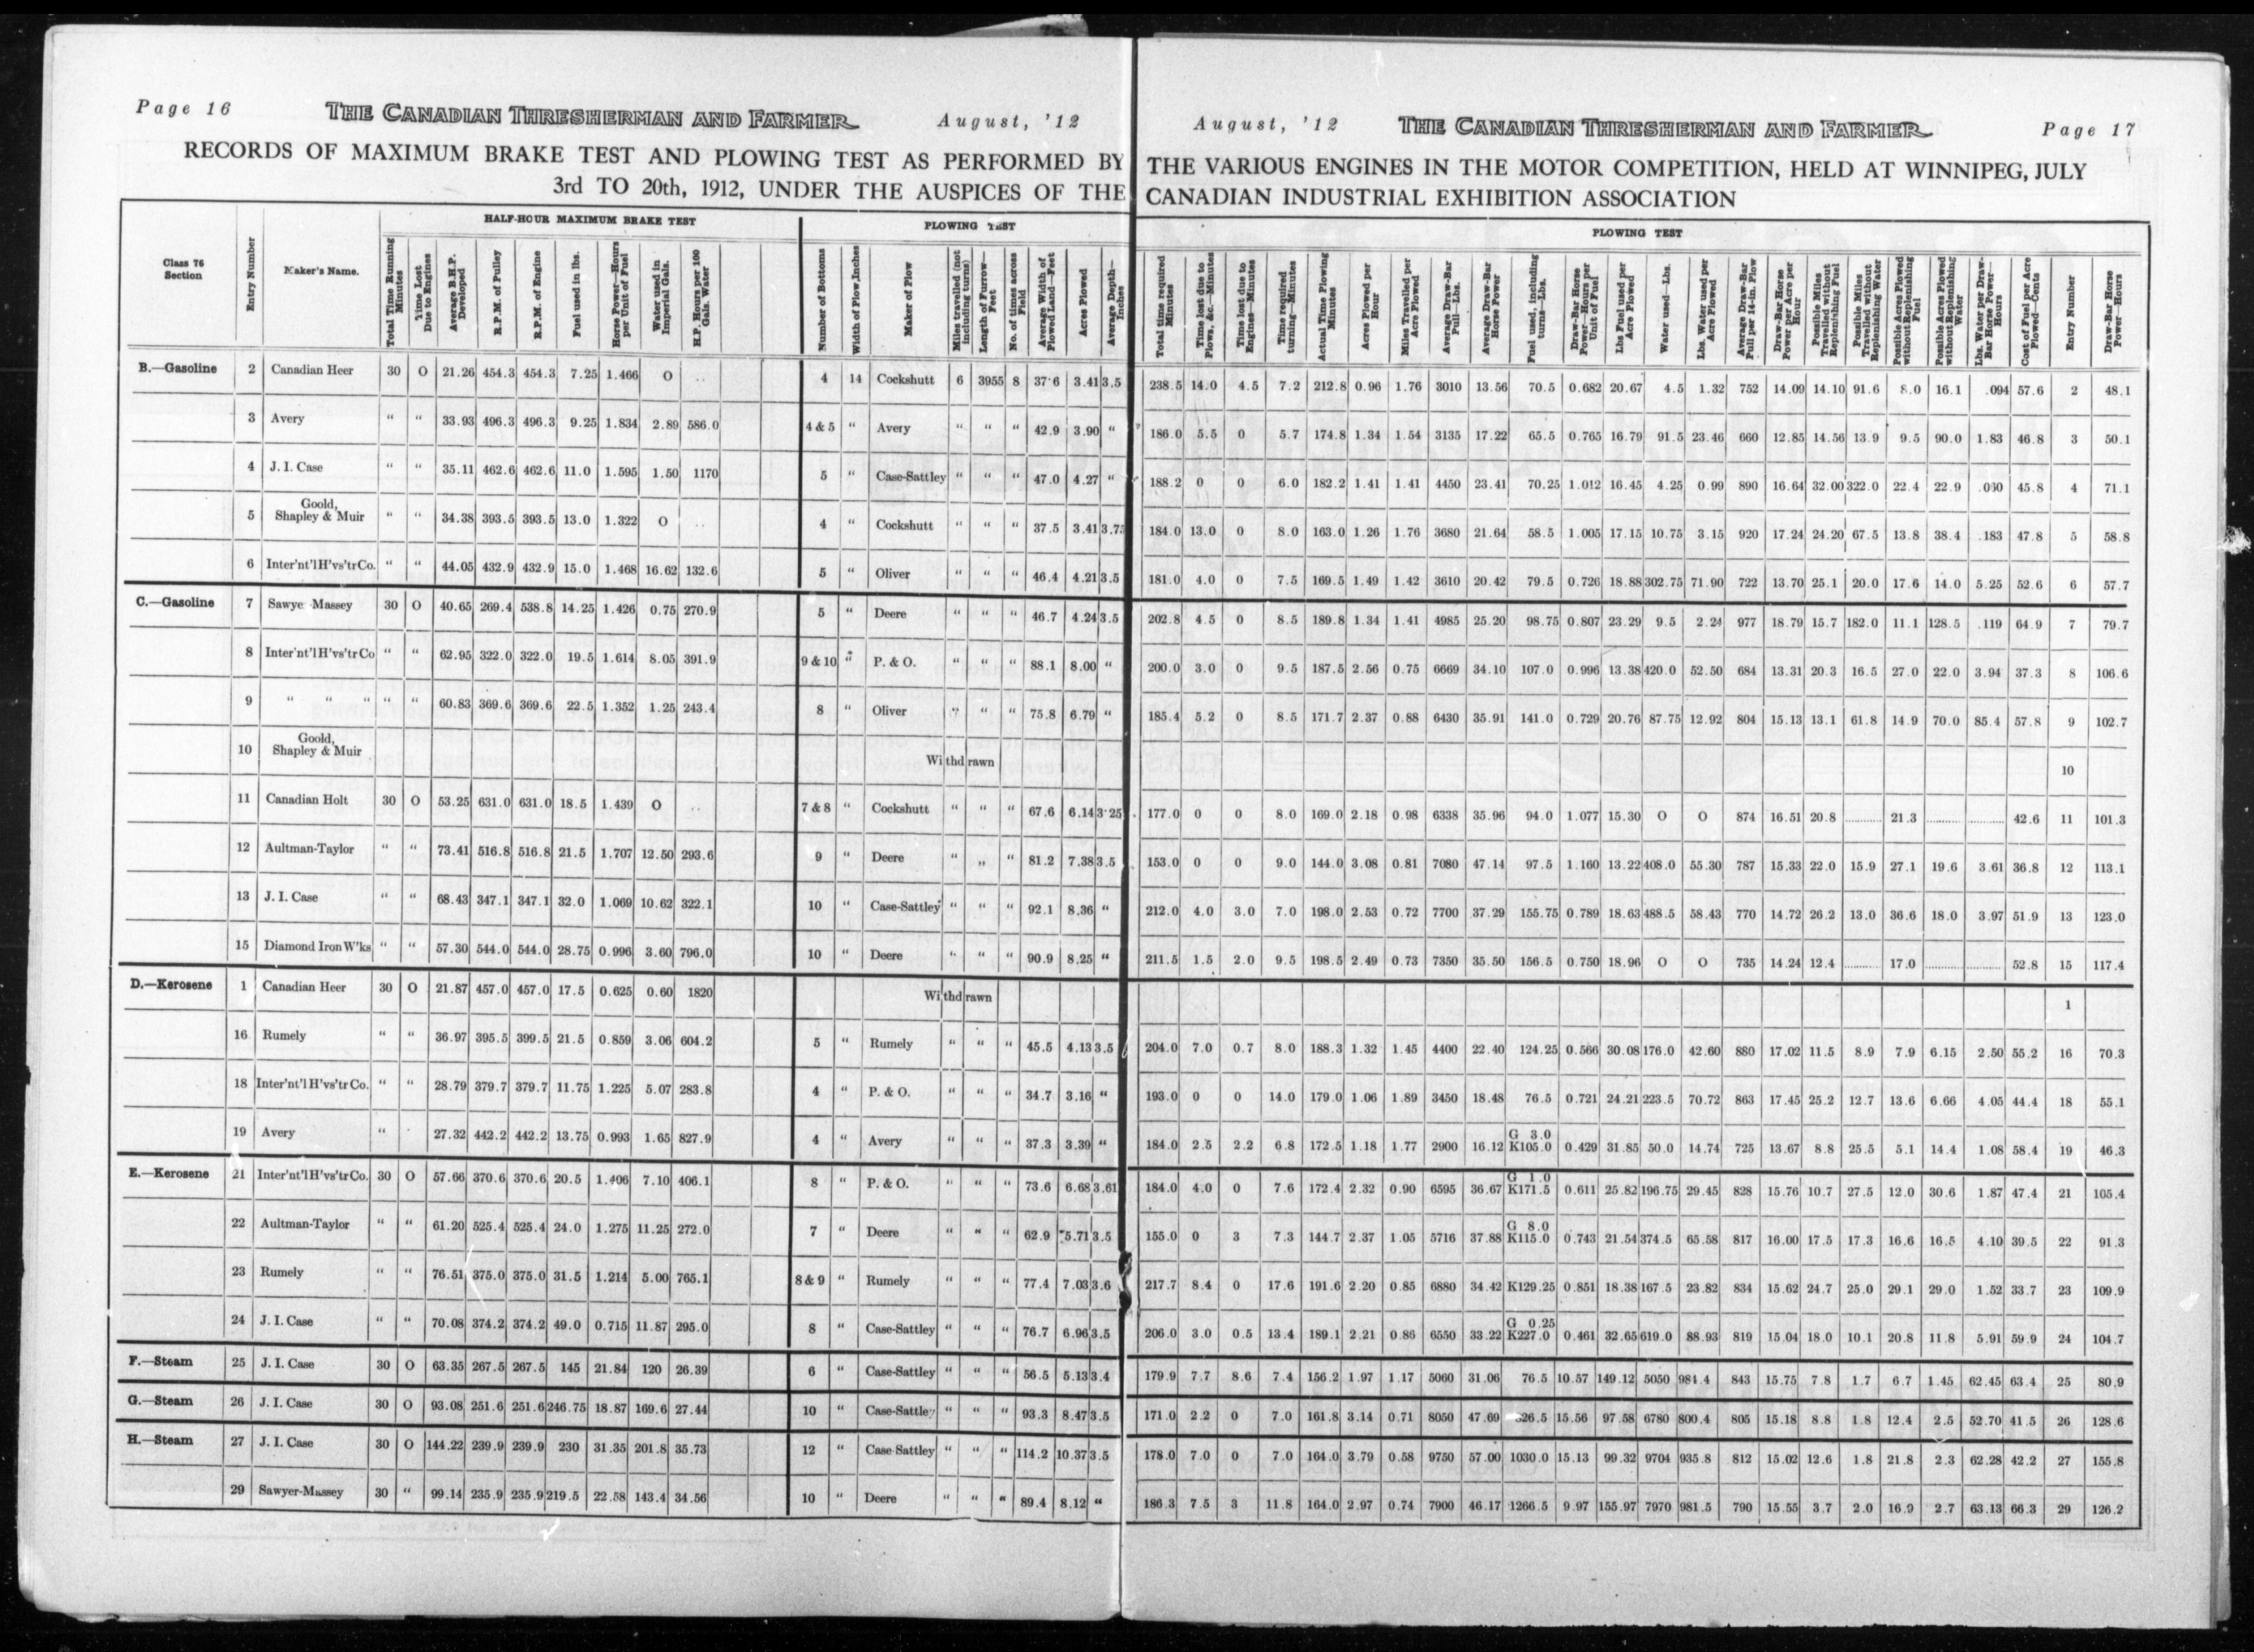 Page 16 THE CANADIAN THRESHERMAN AND FARMER August, '12
RECORDS OF MAXIMUM BRAKE TEST AND PLOWING TEST AS PERFORMED BY
3rd TO 20th, 1912, UNDER THE AUSPICES OF THE
Class 76 Section
Entry Number
Maker's Name.
HALF-HOUR MAXIMUM BRAKE TEST
Total Time Running Minutes
Time Lost Due to Engines
Average B.H.P. Developed
R.P.M. of Pulley
R.P.M. of Engine
Fuel used in lbs.
Horse Power—Hours per Unit of Fuel
Water used in Imperial Gals.
H.P. Hours per 100 Gals. Water
PLOWING TEST
Number of Bottoms
Width of Plow, Inches
Maker of Plow
Miles travelled (not including turns)
Length of Furrow—Feet
No. of times across Field
Average Width of Plowed Land—Feet
Acres Plowed
Average Depth—Inches
B.—Gasoline 2 Canadian Heer 30 O 21.26 454.3 454.3 7.25 1.466 O .. 4 14 Cockshutt 6 3955 8 37.6 3.41 3.5
3 Avery " " 33.93 496.3 496.3 9.25 1.834 2.89 586.0 4 & 5 " Avery " " " 42.9 3.90 "
4 J. I. Case " " 35.11 462.6 462.6 11.0 1.595 1.50 1170 5 " Case-Sattley " " " 47.0 4.27 "
5 Goold, Shapley & Muir " " 34.38 393.5 393.5 13.0 1.322 O .. 4 " Cockshutt " " " 37.5 3.41 3.75
6 Inter'nt'l H'vs'tr Co. " " 44.05 432.9 432.9 15.0 1.468 16.62 132.6 5 " Oliver " " " 46.4 4.21 3.5
C.—Gasoline 7 Sawye Massey 30 O 40.65 269.4 538.8 14.25 1.426 0.75 270.9 5 " Deere " " " 46.7 4.24 3.5
8 Inter'nt'l H'vs'tr Co " " 62.95 322.0 322.0 19.5 1.614 8.05 391.9 9 & 10 " P. & O. " " " 88.1 8.00 "
9 " " " " " 60.83 369.6 369.6 22.5 1.352 1.25 243.4 8 " Oliver " " " 75.8 6.79 "
10 Goold, Shapley & Muir Withdrawn
11 Canadian Holt 30 O 53.25 631.0 631.0 18.5 1.439 O .. 7 & 8 " Cockshutt " " " 67.6 6.14 3.25
12 Aultman-Taylor " " 73.41 516.8 516.8 21.5 1.707 12.50 293.6 9 " Deere " " " 81.2 7.38 3.5
13 J. I. Case " " 68.43 347.1 347.1 32.0 1.069 10.62 322.1 10 " Case-Sattley " " " 92.1 8.36 "
15 Diamond Iron W'ks " " 57.30 544.0 544.0 28.75 0.996 3.60 796.0 10 " Deere " " " 90.9 8.25 "
D.—Kerosene 1 Canadian Heer 30 O 21.87 457.0 457.0 17.5 0.625 0.60 1820 Withdrawn
16 Rumely " " 36.97 395.5 399.5 21.5 0.859 3.06 604.2 5 " Rumely " " " 45.5 4.13 3.5
18 Inter'nt'l H'vs'tr Co. " " 28.79 379.7 379.7 11.75 1.225 5.07 283.8 4 " P. & O. " " " 34.7 3.16 "
19 Avery " 27.32 442.2 442.2 13.75 0.993 1.65 827.9 4 " Avery " " " 37.3 3.39 "
E.—Kerosene 21 Inter'nt'l H'vs'tr Co. 30 O 57.66 370.6 370.6 20.5 1.406 7.10 406.1 8 " P. & O. " " " 73.6 6.68 3.61
22 Aultman-Taylor " " 61.20 525.4 525.4 24.0 1.275 11.25 272.0 7 " Deere " " " 62.9 5.71 3.5
23 Rumely " " 76.51 375.0 375.0 31.5 1.214 5.00 765.1 8 & 9 " Rumely " " " 77.4 7.03 3.6
24 J. I. Case " " 70.08 374.2 374.2 49.0 0.715 11.87 295.0 8 " Case-Sattley " " " 76.7 6.96 3.5
F.—Steam 25 J. I. Case 30 O 63.35 267.5 267.5 145 21.84 120 26.39 6 " Case-Sattley " " " 56.5 5.13 3.4
G.—Steam 26 J. I. Case 30 O 93.08 251.6 251.6 246.75 18.87 169.6 27.44 10 " Case-Sattley " " " 93.3 8.47 3.5
H.—Steam 27 J. I. Case 30 O 144.22 239.9 239.9 230 31.35 201.8 35.73 12 " Case Sattley " " " 114.2 10.37 3.5
29 Sawyer-Massey 30 " 99.14 235.9 235.9 219.5 22.58 143.4 34.56 10 " Deere " " " 89.4 8.12 "
August, '12 THE CANADIAN THRESHERMAN AND FARMER Page 17
THE VARIOUS ENGINES IN THE MOTOR COMPETITION, HELD AT WINNIPEG, JULY
CANADIAN INDUSTRIAL EXHIBITION ASSOCIATION
PLOWING TEST
Total time required Minutes
Time lost due to Plows, &c.—Minutes
Time lost due to Engines—Minutes
Time required turning—Minutes
Actual Time Plowing Minutes
Acres Plowed per Hour
Miles Travelled per Acre Plowed
Average Draw-Bar Pull—Lbs.
Average Draw-Bar Horse Power
Fuel used, including turns—Lbs.
Draw-Bar Horse Power—Hours per Unit of Fuel
Lbs Fuel used per Acre Plowed
Water used—Lbs.
Lbs. Water used per Acre Plowed
Average Draw-Bar Pull per 14-in. Plow
Draw-Bar Horse Power per Acre per Hour
Possible Miles Travelled without Replenishing Fuel
Possible Miles Travelled without Replenishing Water
Possible Acres Plowed without Replenishing Fuel
Possible Acres Plowed without Replenishing Water
Lbs. Water per Draw-Bar Horse Power—Hours
Cost of Fuel per Acre Plowed—Cents
Entry Number
Draw-Bar Horse Power—Hours
238.5 14.0 4.5 7.2 212.8 0.96 1.76 3010 13.56 70.5 0.682 20.67 4.5 1.32 752 14.09 14.10 91.6 8.0 16.1 .094 57.6 2 48.1
186.0 5.5 0 5.7 174.8 1.34 1.54 3135 17.22 65.5 0.765 16.79 91.5 23.46 660 12.85 14.56 13.9 9.5 90.0 1.83 46.8 3 50.1
188.2 0 0 6.0 182.2 1.41 1.41 4450 23.41 70.25 1.012 16.45 4.25 0.99 890 16.64 32.00 322.0 22.4 22.9 .060 45.8 4 71.1
184.0 13.0 0 8.0 163.0 1.26 1.76 3680 21.64 58.5 1.005 17.15 10.75 3.15 920 17.24 24.20 67.5 13.8 38.4 .183 47.8 5 58.8
181.0 4.0 0 7.5 169.5 1.49 1.42 3610 20.42 79.5 0.726 18.88 302.75 71.90 722 13.70 25.1 20.0 17.6 14.0 5.25 52.6 6 57.7
202.8 4.5 0 8.5 189.8 1.34 1.41 4985 25.20 98.75 0.807 23.29 9.5 2.24 977 18.79 15.7 182.0 11.1 128.5 .119 64.9 7 79.7
200.0 3.0 0 9.5 187.5 2.56 0.75 6669 34.10 107.0 0.996 13.38 420.0 52.50 684 13.31 20.3 16.5 27.0 22.0 3.94 37.3 8 106.6
185.4 5.2 0 8.5 171.7 2.37 0.88 6430 35.91 141.0 0.729 20.76 87.75 12.92 804 15.13 13.1 61.8 14.9 70.0 85.4 57.8 9 102.7
10
177.0 0 0 8.0 169.0 2.18 0.98 6338 35.96 94.0 1.077 15.30 O O 874 16.51 20.8 .......... 21.3 .......... .......... 42.6 11 101.3
153.0 0 0 9.0 144.0 3.08 0.81 7080 47.14 97.5 1.160 13.22 408.0 55.30 787 15.33 22.0 15.9 27.1 19.6 3.61 36.8 12 113.1
212.0 4.0 3.0 7.0 198.0 2.53 0.72 7700 37.29 155.75 0.789 18.63 488.5 58.43 770 14.72 26.2 13.0 36.6 18.0 3.97 51.9 13 123.0
211.5 1.5 2.0 9.5 198.5 2.49 0.73 7350 35.50 156.5 0.750 18.96 O O 735 14.24 12.4 .......... 17.0 .......... .......... 52.8 15 117.4
1
204.0 7.0 0.7 8.0 188.3 1.32 1.45 4400 22.40 124.25 0.566 30.08 176.0 42.60 880 17.02 11.5 8.9 7.9 6.15 2.50 55.2 16 70.3
193.0 0 0 14.0 179.0 1.06 1.89 3450 18.48 76.5 0.721 24.21 223.5 70.72 863 17.45 25.2 12.7 13.6 6.66 4.05 44.4 18 55.1
184.0 2.5 2.2 6.8 172.5 1.18 1.77 2900 16.12 G 3.0 K105.0 0.429 31.85 50.0 14.74 725 13.67 8.8 25.5 5.1 14.4 1.08 58.4 19 46.3
184.0 4.0 0 7.6 172.4 2.32 0.90 6595 36.67 G 1.0 K171.5 0.611 25.82 196.75 29.45 828 15.76 10.7 27.5 12.0 30.6 1.87 47.4 21 105.4
155.0 0 3 7.3 144.7 2.37 1.05 5716 37.88 G 8.0 K115.0 0.743 21.54 374.5 65.58 817 16.00 17.5 17.3 16.6 16.5 4.10 39.5 22 91.3
217.7 8.4 0 17.6 191.6 2.20 0.85 6880 34.42 K129.25 0.851 18.38 167.5 23.82 834 15.62 24.7 25.0 29.1 29.0 1.52 33.7 23 109.9
206.0 3.0 0.5 13.4 189.1 2.21 0.86 6550 33.22 G 0.25 K227.0 0.461 32.65 619.0 88.93 819 15.04 18.0 10.1 20.8 11.8 5.91 59.9 24 104.7
179.9 7.7 8.6 7.4 156.2 1.97 1.17 5060 31.06 76.5 10.57 149.12 5050 984.4 843 15.75 7.8 1.7 6.7 1.45 62.45 63.4 25 80.9
171.0 2.2 0 7.0 161.8 3.14 0.71 8050 47.69 15.56 97.58 6780 800.4 805 15.18 8.8 1.8 12.4 2.5 52.70 41.5 26 128.6
178.0 7.0 0 7.0 164.0 3.79 0.58 9750 57.00 1030.0 15.13 99.32 9704 935.8 812 15.02 12.6 1.8 21.8 2.3 62.28 42.2 27 155.8
186.3 7.5 3 11.8 164.0 2.97 0.74 7900 46.17 1266.5 9.97 155.97 7970 981.5 790 15.55 3.7 2.0 16.9 2.7 63.13 66.3 29 126.2